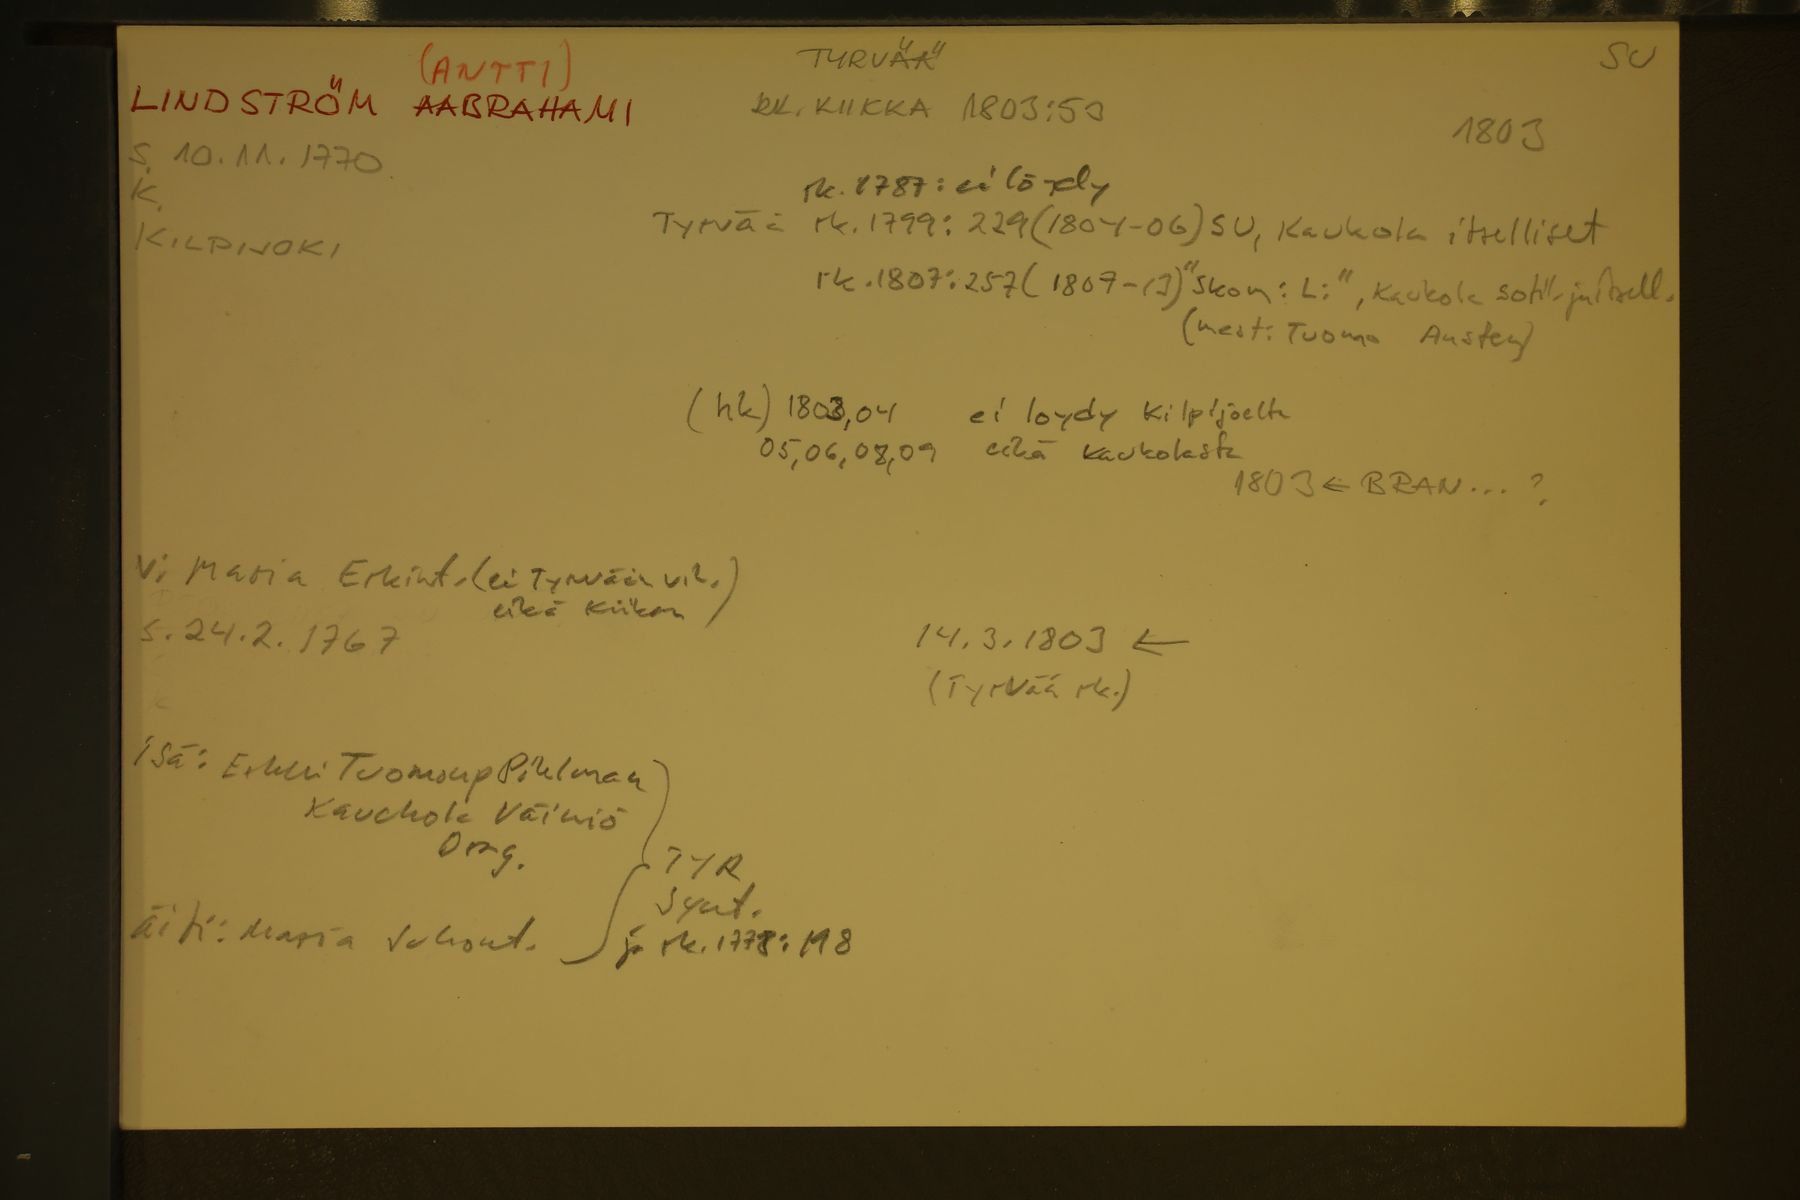 (ANTTI)
LINDSTRÖM AABRAHAMI
TYRVÄÄ
SU
RK. KIIKKA 1803:53
1803
S. 10.11.1770
K.
KILPIJOKI
rk. 1787: ei löydy
Tyrvää rk. 1799: 229 (1804-06) SU, Kaukola itselliset
rk. 1807: 257 (1807-13) "Skom: L:", Kaukola sotil. ja itsell.
(mest: Tuomo Austen)
(hk) 1803,04 ei löydy Kilpijoelta
05,06,08,09 eikä Kaukolasta
1803 ← BRAN... ?
V: Maria Erkint. (ei Tyrvään vih.)
eikä Kiikan
s. 24.2.1767
14.3.1803 ←
(Tyrvää rk.)
isä: Erkki Tuomonp Pihlman
Kauckola Väiniö
Drag.
äiti: Maria Juhont.
TYR
Synt.
ja rk. 1778: 118